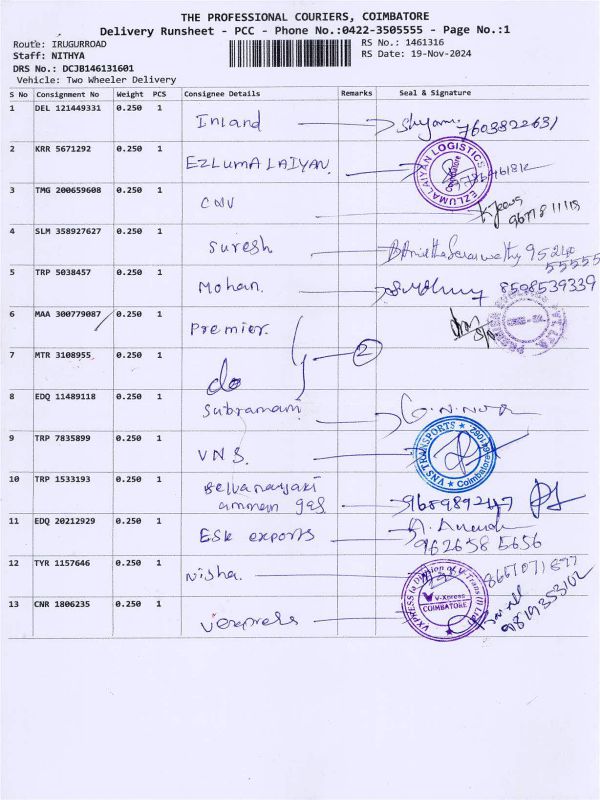 THE PROFESSIONAL COURIERS, COIMBATORE
Delivery Runsheet - PCC - Phone No.:0422-3505555 - Page No.:1
Route: IRUGURROAD
RS No.: 1461316
Staff: NITHYA
RS Date: 19-Nov-2024
DRS No.: DCJB146131601
Vehicle: Two Wheeler Delivery
S No Consignment No Weight PCS Consignee Details Remarks Seal & Signature
1 DEL 121449331 0.250 1 Inland Shyam 7603822631
2 KRR 5671292 0.250 1 EZLUMALAIYAN
EZLUMALAIYAN LOGISTICS Coimbatore
3 TMG 200659608 0.250 1 CNV
4 SLM 358927627 0.250 1 Suresh 95240
55555
5 TRP 5038457 0.250 1 Mohan. 8598539339
6 MAA 300779087 0.250 1 Premier
7 MTR 3108955 0.250 1 do 2
8 EDQ 11489118 0.250 1 Subramani
9 TRP 7835899 0.250 1 VNS.
VNS TRANSPORTS Coimbatore
10 TRP 1533193 0.250 1 Selvanayaki
amman gas
11 EDQ 20212929 0.250 1 Esk exports A. Anand
962658 5656
12 TYR 1157646 0.250 1 Nisha.
13 CNR 1806235 0.250 1 Vexpress
VXPRESS (a Division of V-Trans (I) Ltd.)
V-Xpress
COIMBATORE
9819353102